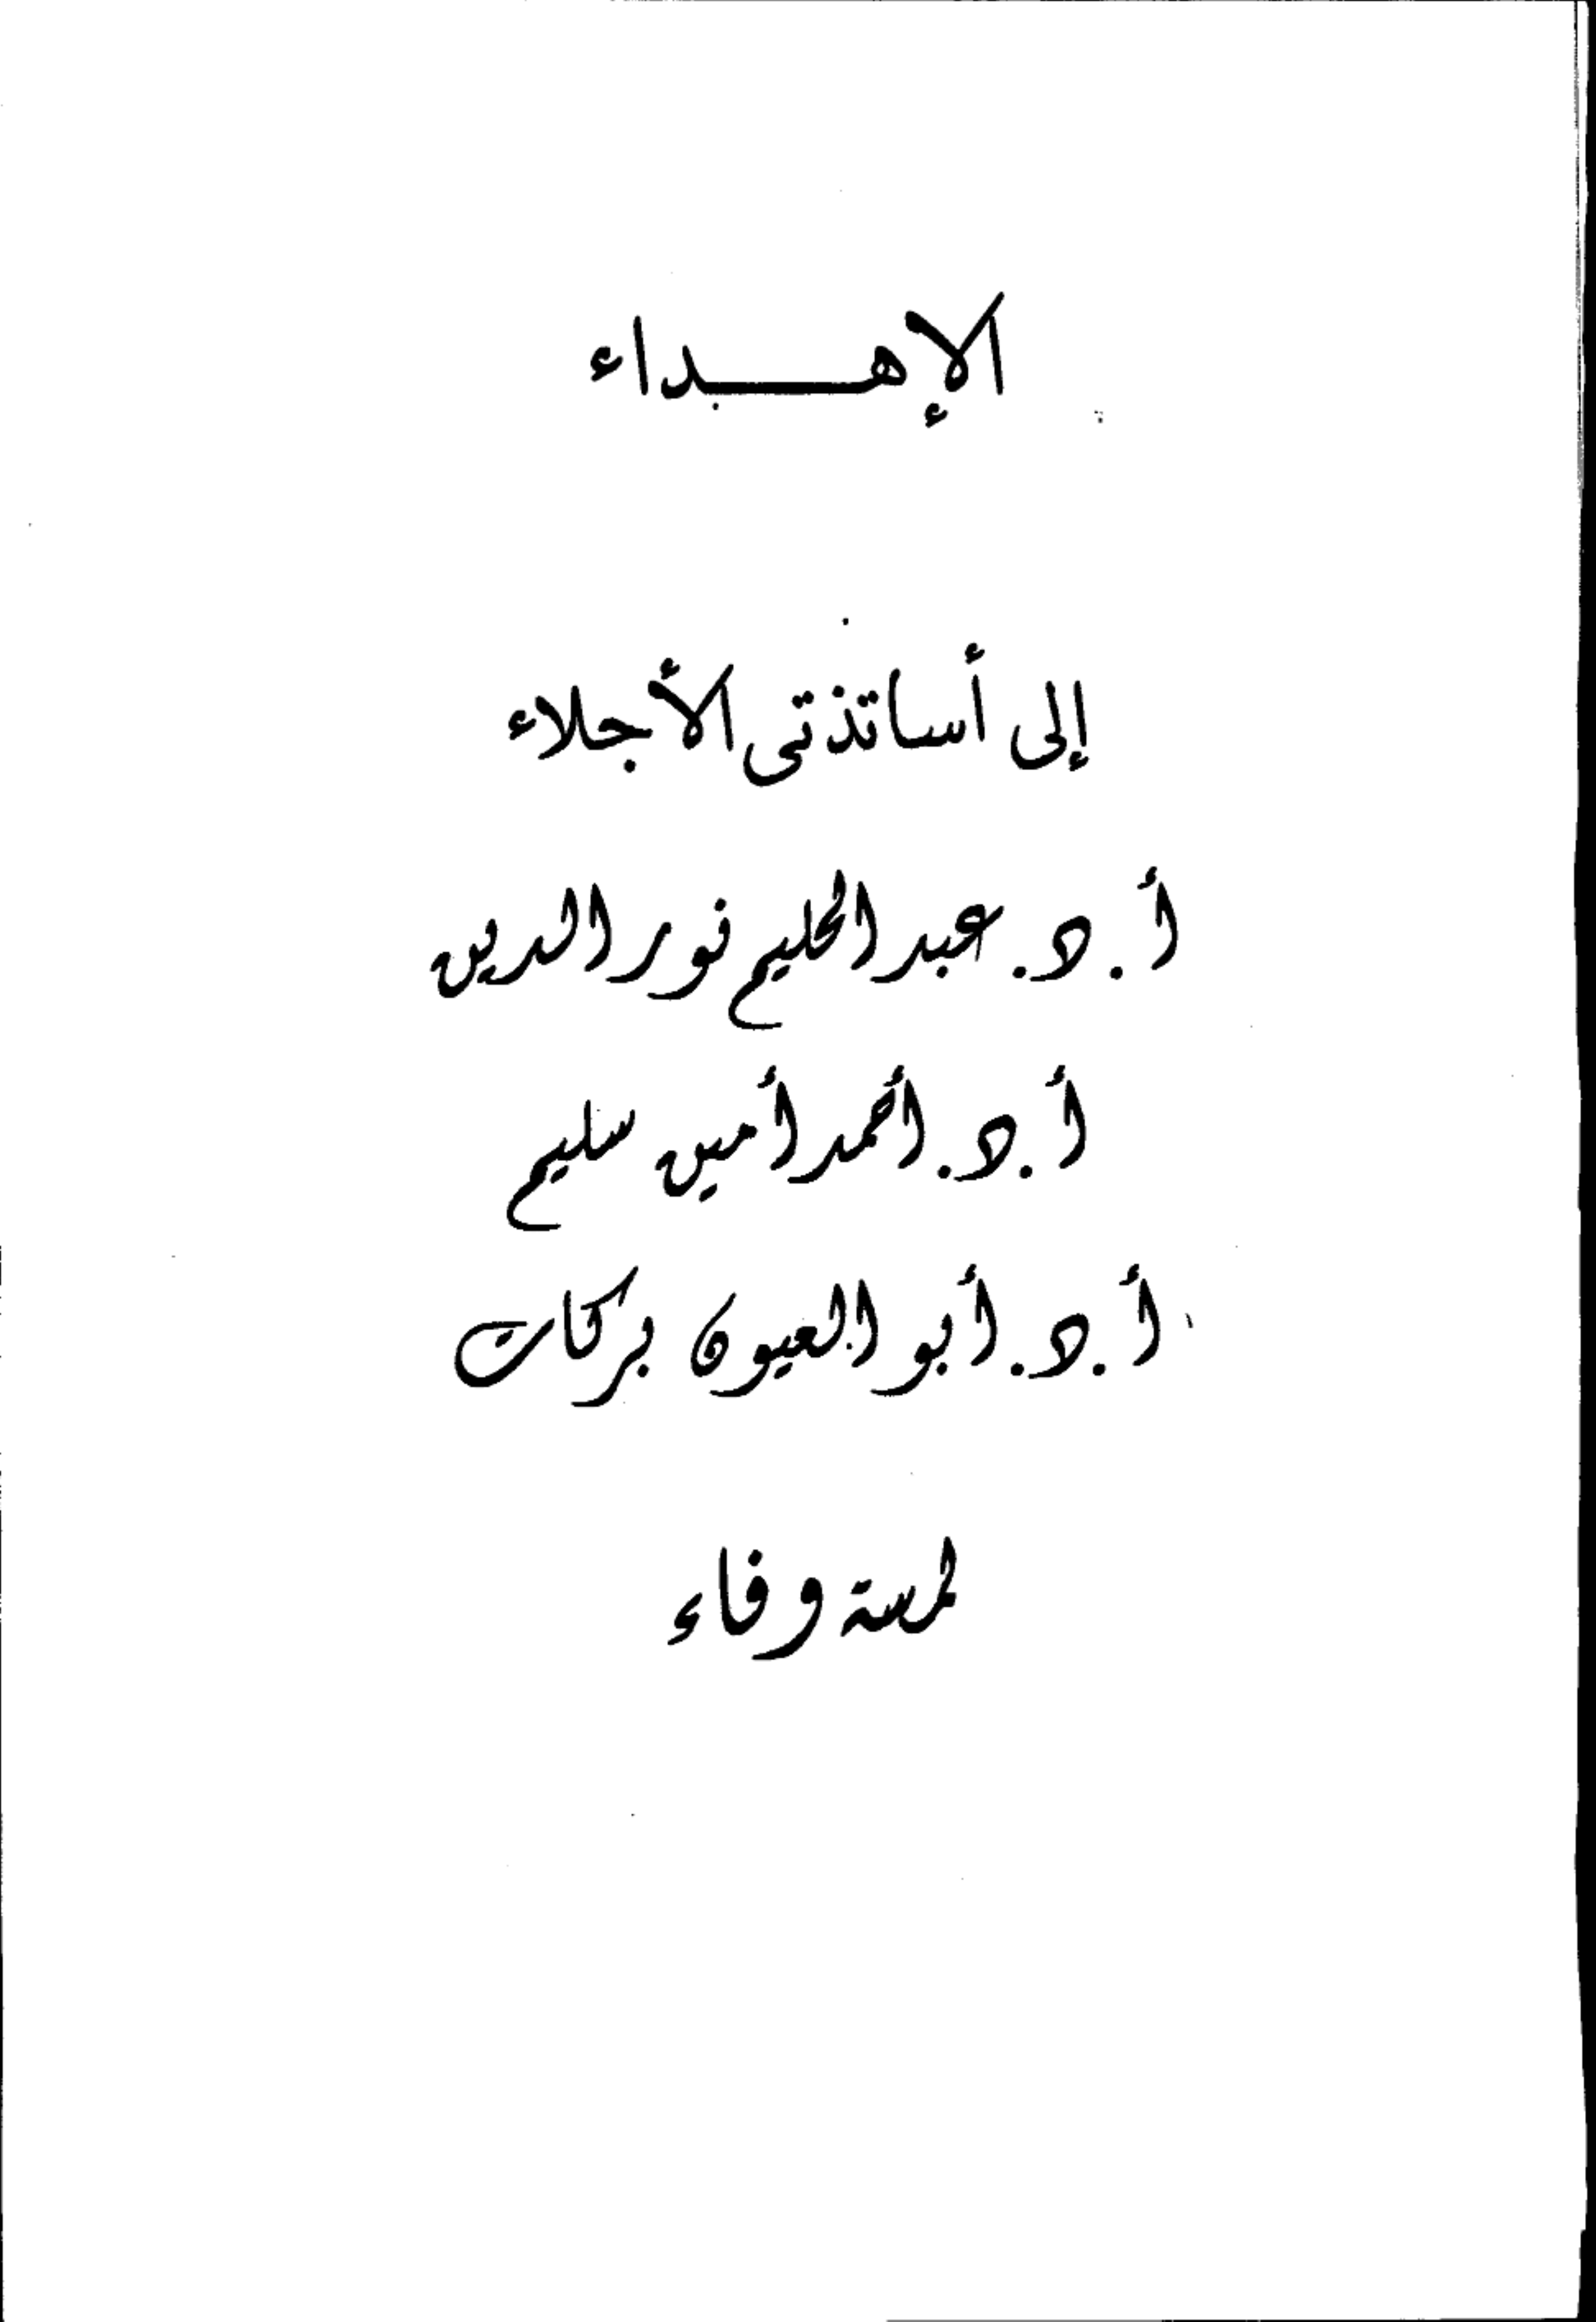 الإهـــداء
إلى أساتذتى الأجلاء
أ. د. عبد الحليم نور الدين
أ. د. أحمد أمين سليم
أ. د. أبو العيون بركات
لمسة وفاء